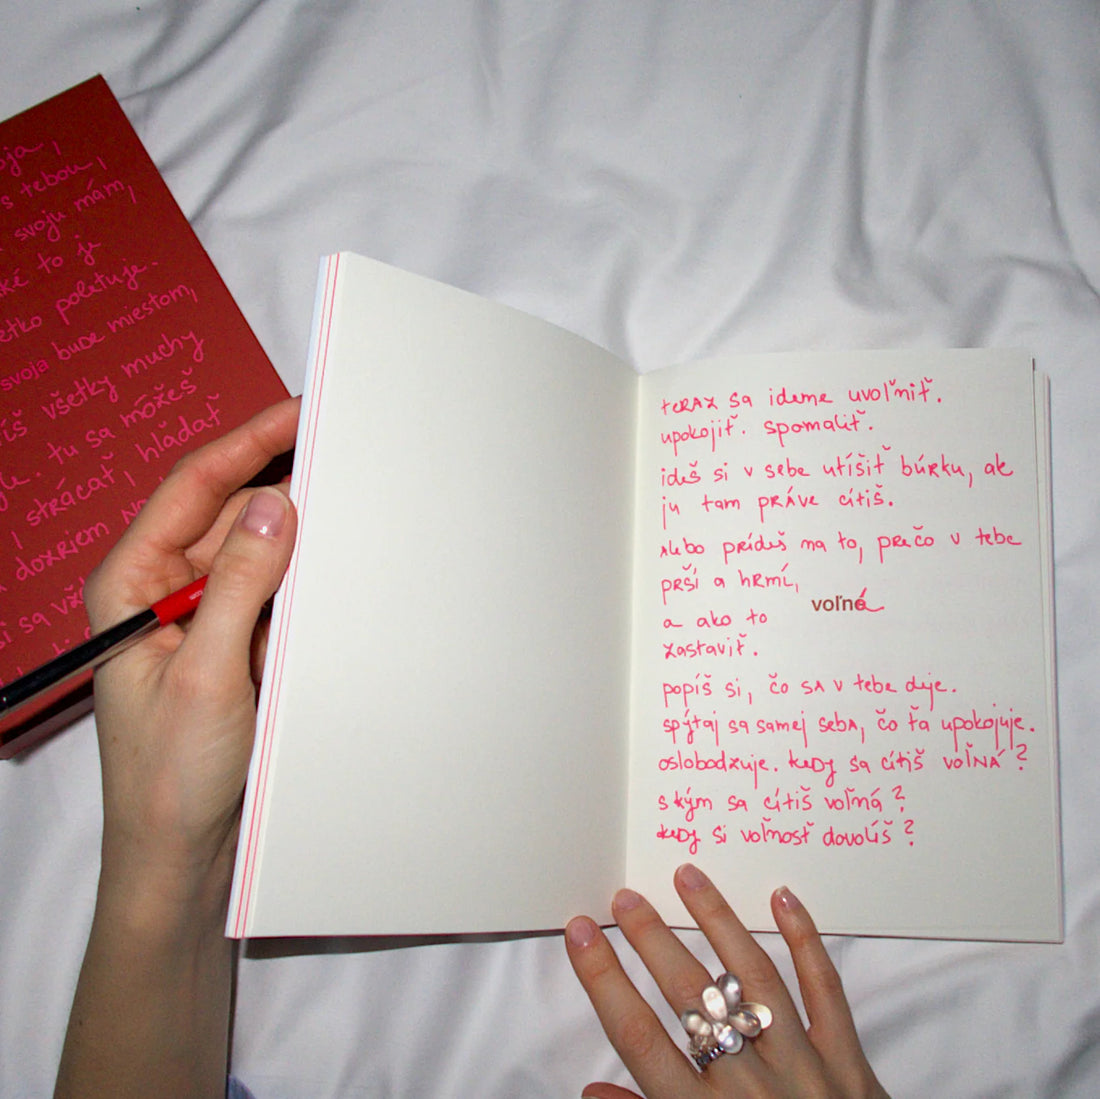 s tebou,
svoju mám,
to je
poletuje.
svoja bude miestom,
všetky muchy
tu sa môžeš
strácať i hľadať
teRAZ sa ideme uvoľniť.
upokojiť. spomaliť.
ideš si v sebe utíšiť búrku, ak
ju tam PRÁVE cítiš.
Alebo prídeš na to, prečo v tebe
pRŠí a hRmí,
voľné
a ako to
zastaviť.
popíš si, čo sA v tebe deje.
spýtaj sa samej sebA, čo ťa upokojuje.
oslobodzuje. keDy sa cítiš voľNÁ?
s kým sa cítiš voľná?
keDy si voľnosť dovolíš?